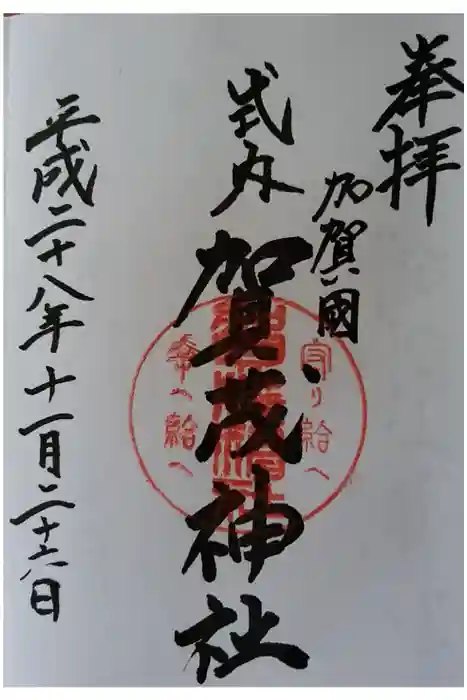 奉拝
加賀國
式内
賀茂神社
守り給へ
幸へ給へ
平成二十八年十一月二十六日